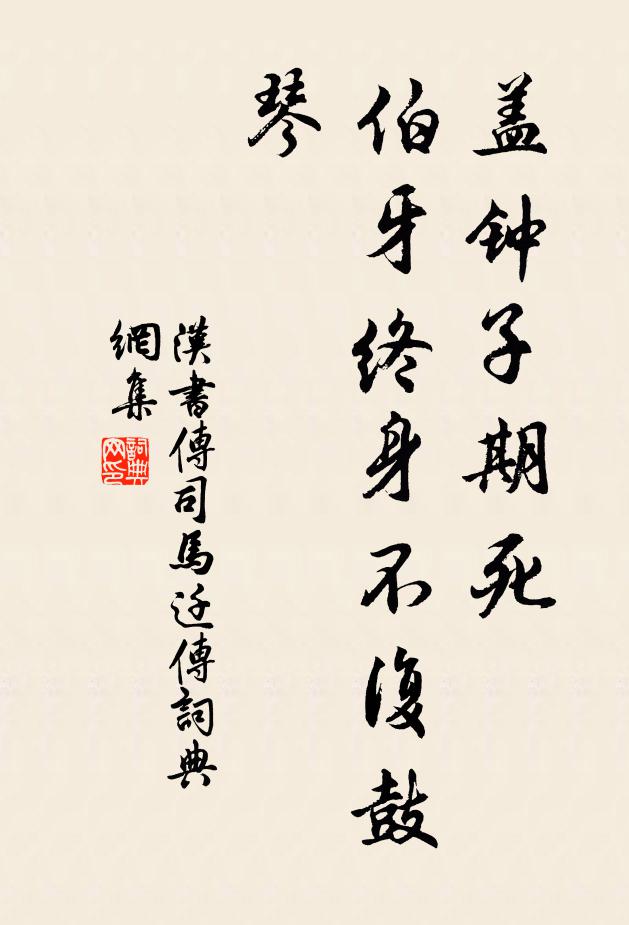 盖钟子期死
伯牙终身不復鼓
琴
漢書傳司馬迁傳詞典
網集
詞典
网印